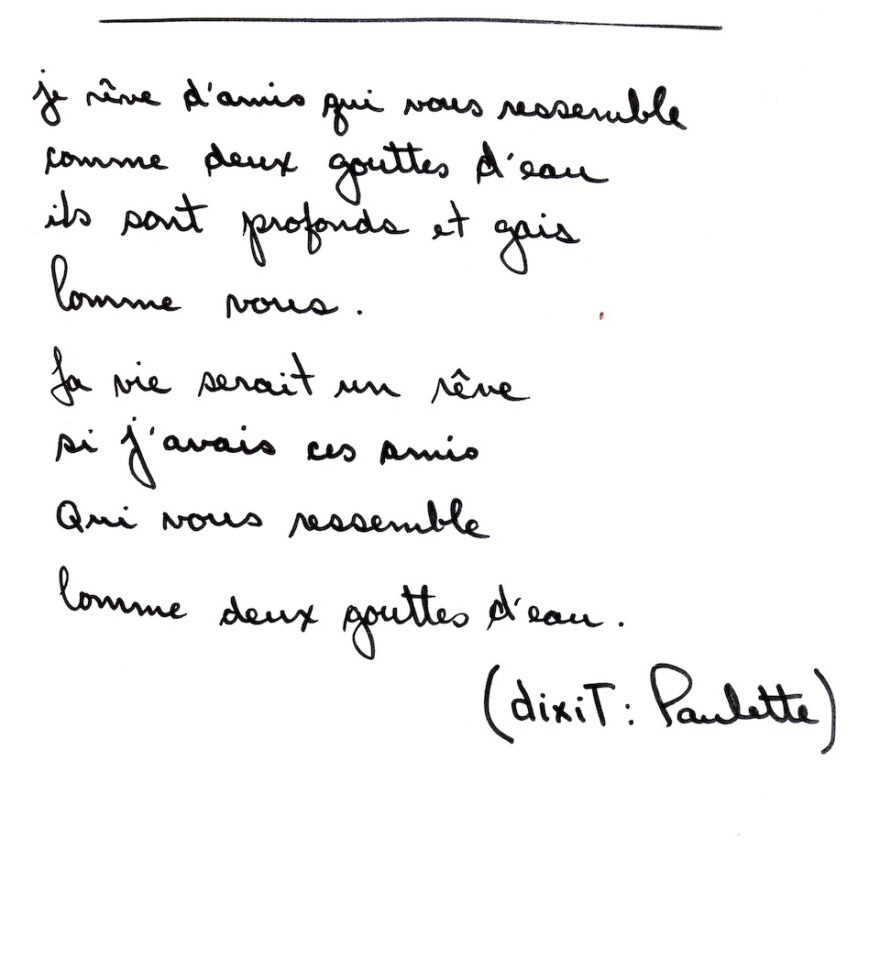 je rêve d'amis qui vous ressemble
comme deux gouttes d'eau
ils sont profonds et gais
Comme vous.
La vie serait un rêve
si j'avais ces amis
Qui vous ressemble
Comme deux gouttes d'eau.
(dixiT: Paulette)